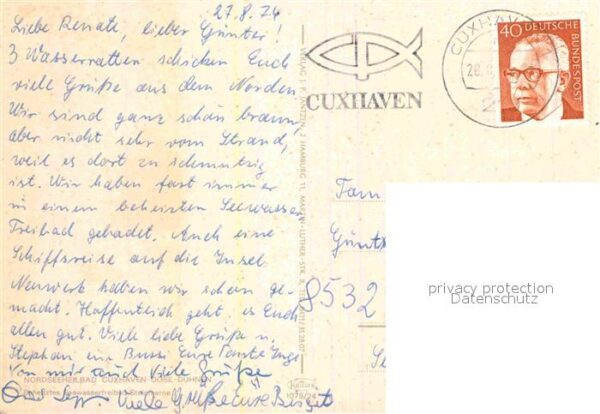 27.8.74
Liebe Renate, lieber Günter!
3 Wasserratten schicken Euch
viele Grüße aus dem Norden
Wir sind ganz schön braun
aber nicht sehr vom Strand,
weil es dort zu schmutzig
ist. Wir haben fast immer
in einem beheizten Seewasser
Freibad gebadet. Auch eine
Schiffsreise auf die Insel
Neuwerk haben wir schon ge-
macht. Hoffentlich geht es Euch
allen gut. Viele liebe Grüße u.
Stephani ein Bussi Eure Tante Inge
Von mir auch viele Grüße
Viele Grüße Eure Birgit
NORDSEEHEILBAD CUXHAVEN DUHNEN
CUXHAVEN
CUXHAVEN
40 DEUTSCHE
BUNDESPOST
HAMBURG 11, MARTIN-LUTHER-STR.
Fam
Günt
8532
privacy protection
Datenschutz